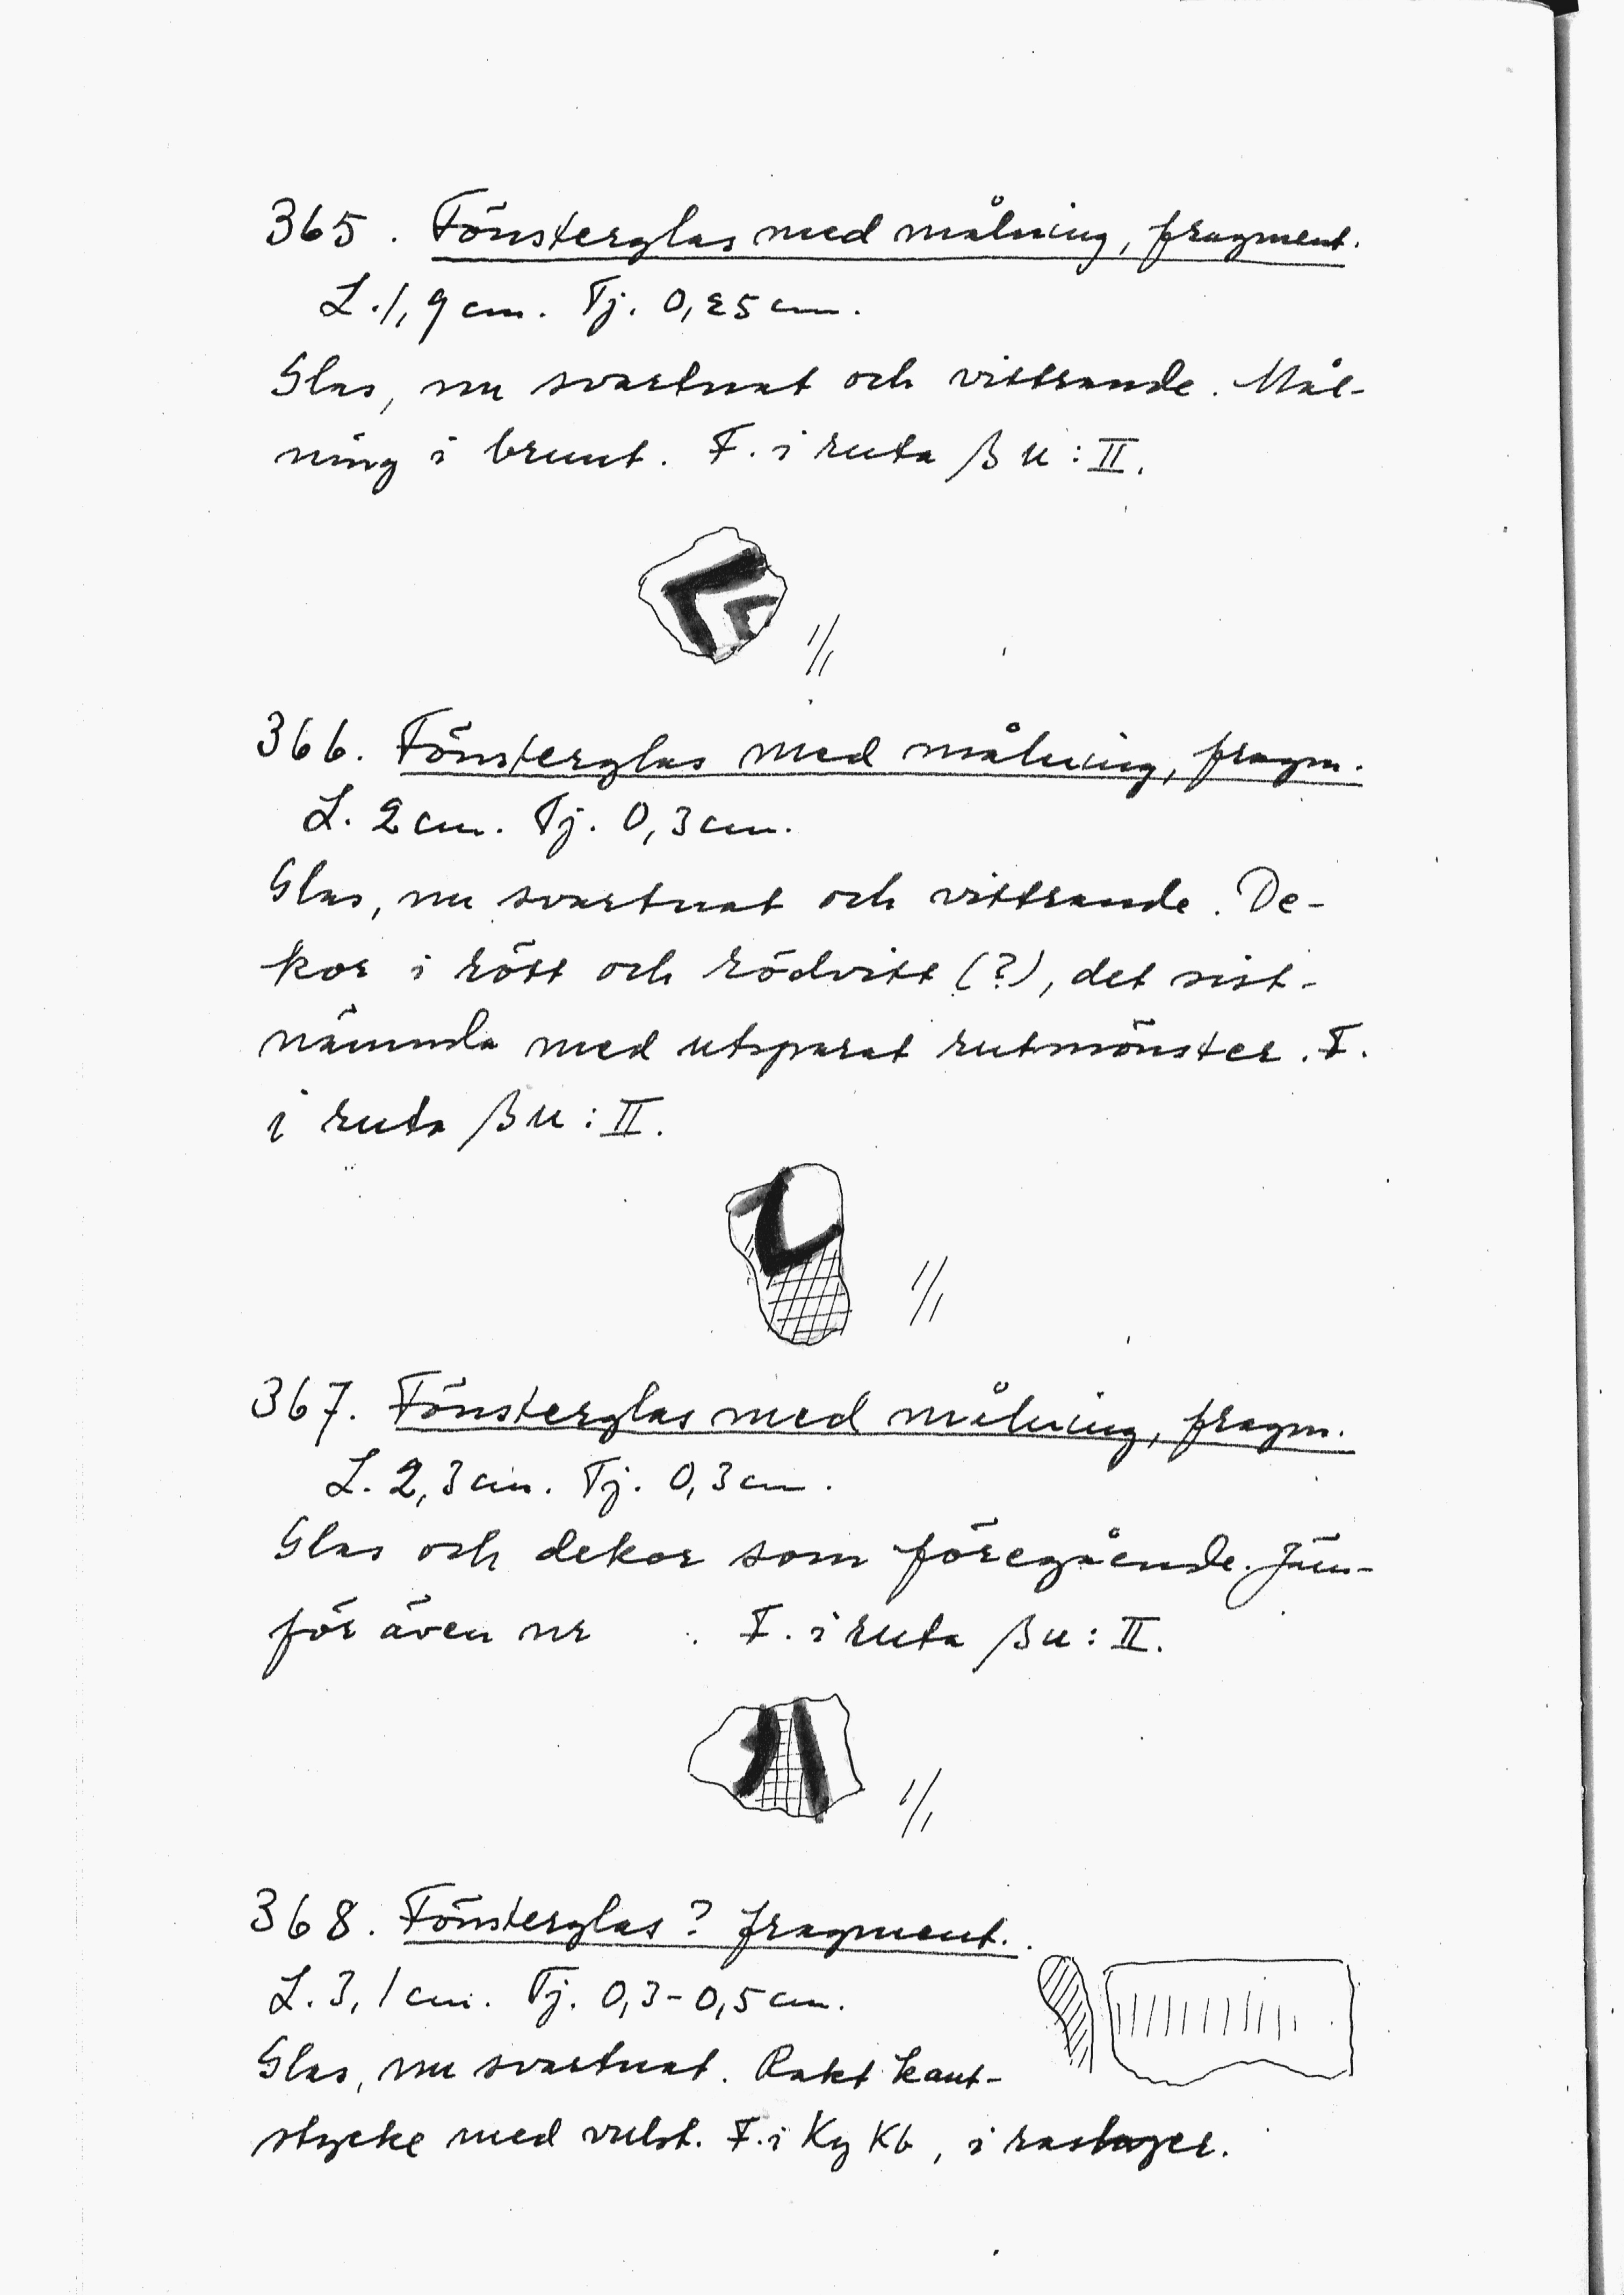 365. Fönsterglas med målning, fragment.
L. 1,9 cm. Tj. 0,25 cm.
Glas, nu svartnat och vittrande. Mål-
ning i brunt. F. i ruta βu: II.
1/1
366. Fönsterglas med målning, fragm.
L. 2 cm. Tj. 0,3 cm.
Glas, nu svartnat och vittrande. De-
kor i rött och rödvitt (?), det sist-
nämnda med utsparat rutmönster. F.
i ruta βu: II.
1/1
367. Fönsterglas med målning, fragm.
L. 2,3 cm. Tj. 0,3 cm.
Glas och dekor som föregående. Jäm-
för även nr . F. i ruta βu: II.
1/1
368. Fönsterglas? fragment.
L. 3,1 cm. Tj. 0,3-0,5 cm.
Glas, nu svartnat. Rakt kant-
stycke med vulst. F. i Kg Kb, i raslager.